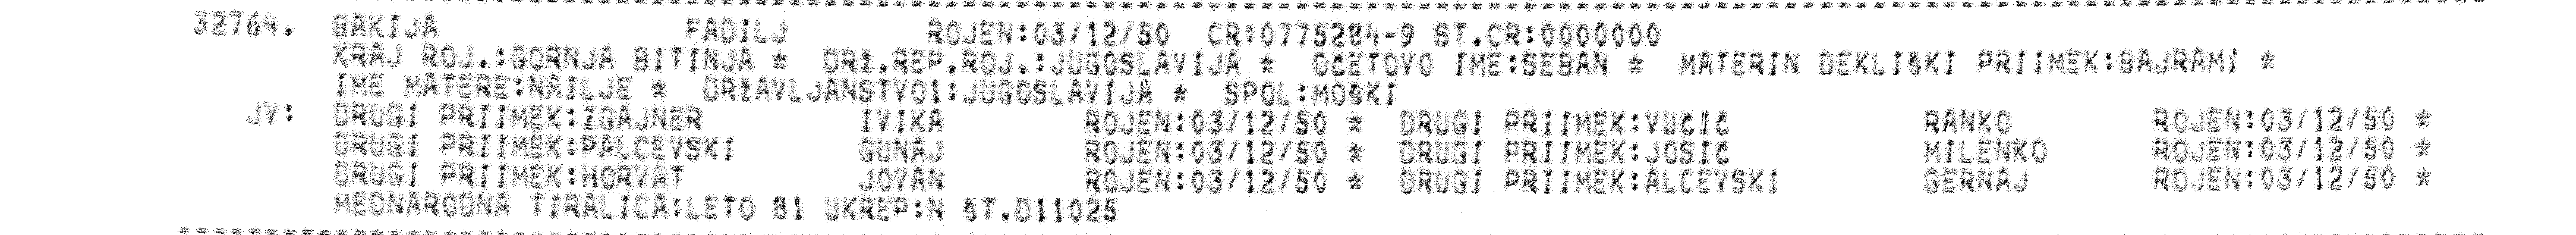 32764. BAKIJA FADILJ ROJEN:03/12/50 CR:0775284-9 ST.CR:0000000
KRAJ ROJ.:GORNJA BITINJA * DRŽ.REP.ROJ.:JUGOSLAVIJA * OČETOVO IME:SEBAN * MATERIN DEKLIŠKI PRIIMEK:BAJRAMI *
IME MATERE:NAILJE * DRŽAVLJANSTVO1:JUGOSLAVIJA * SPOL:MOŠKI
JV: DRUGI PRIIMEK:ZGAJNER IVIKA ROJEN:03/12/50 * DRUGI PRIIMEK:VUČIČ RANKO ROJEN:03/12/50 *
DRUGI PRIIMEK:PALCEVSKI GUNAJ ROJEN:03/12/50 * DRUGI PRIIMEK:JOSIČ MILENKO ROJEN:03/12/50 *
DRUGI PRIIMEK:HORVAT JOVAN ROJEN:03/12/50 * DRUGI PRIIMEK:ALCEVSKI GERNAJ ROJEN:03/12/50 *
MEDNARODNA TIRALICA:LETO 81 UKREP:N ŠT.D11025